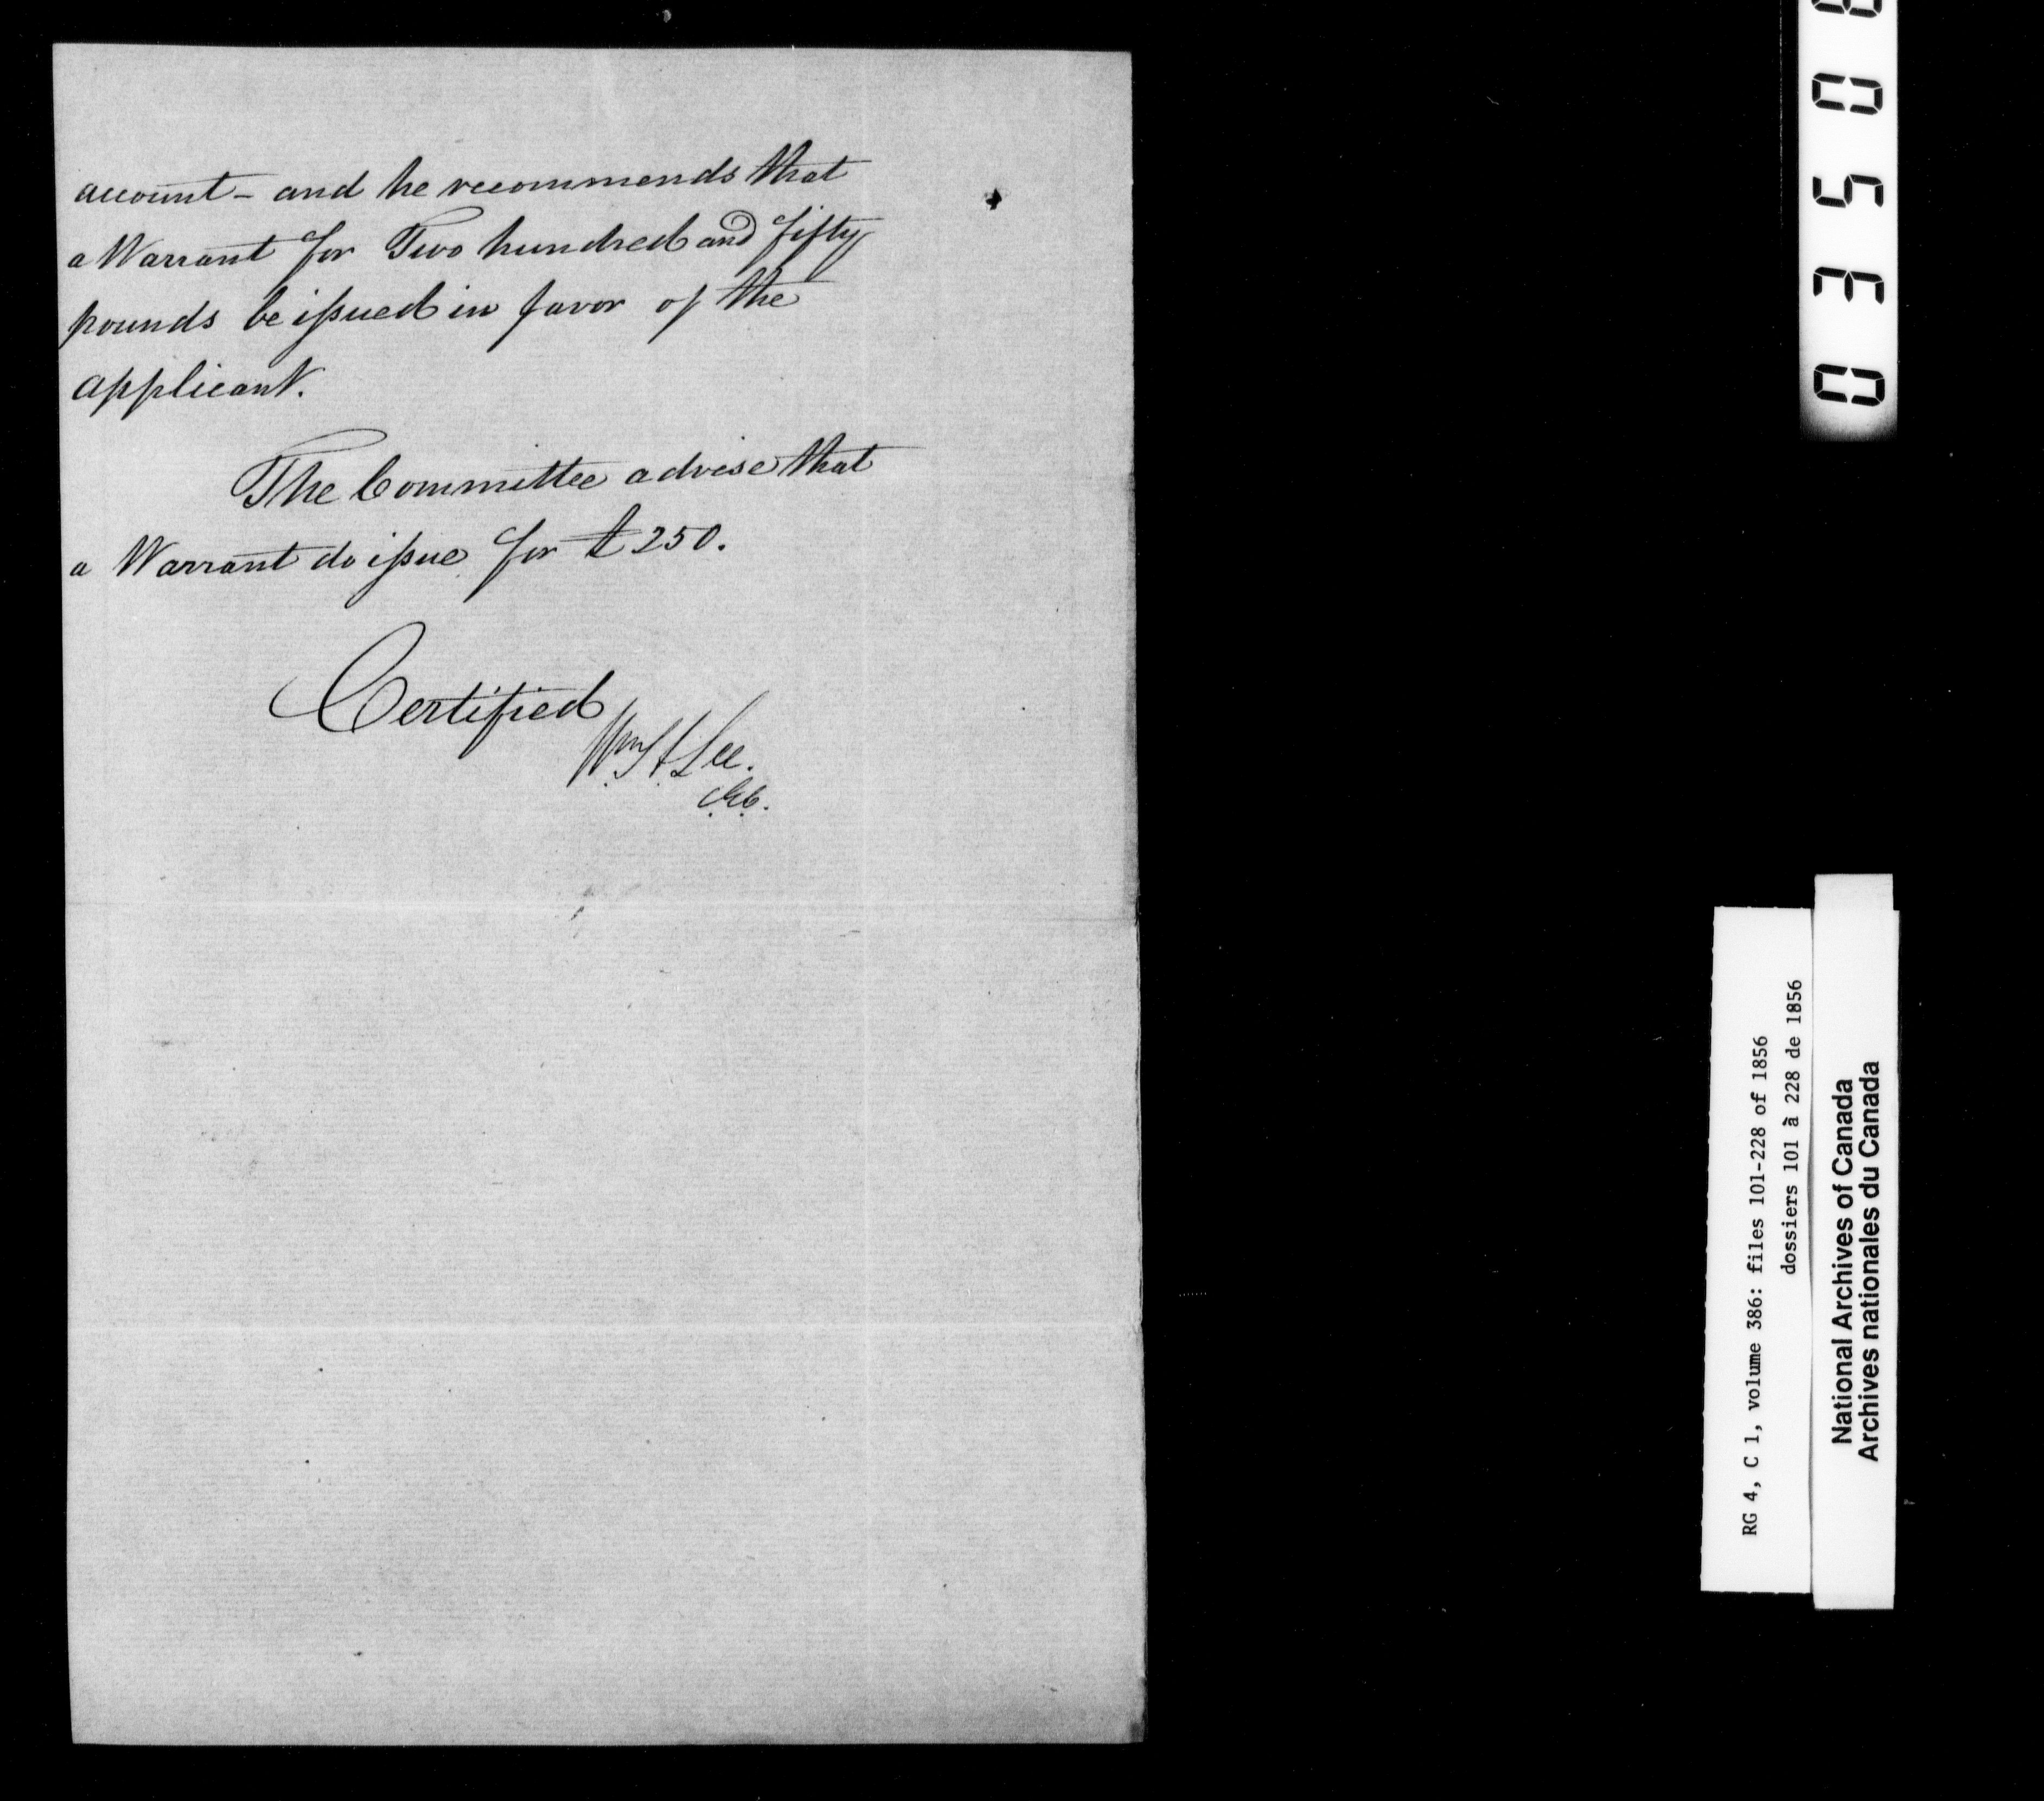 account - and he recommends that
a Warrant for Two hundred and fifty
pounds be issued in favor of the
applicant.
The Committee advise that
a Warrant do issue for £250.
Certified
Wm. H. Lee.
C.E.C.
0350
RG 4, C 1, volume 386: files 101-228 of 1856
dossiers 101 à 228 de 1856
National Archives of Canada
Archives nationales du Canada